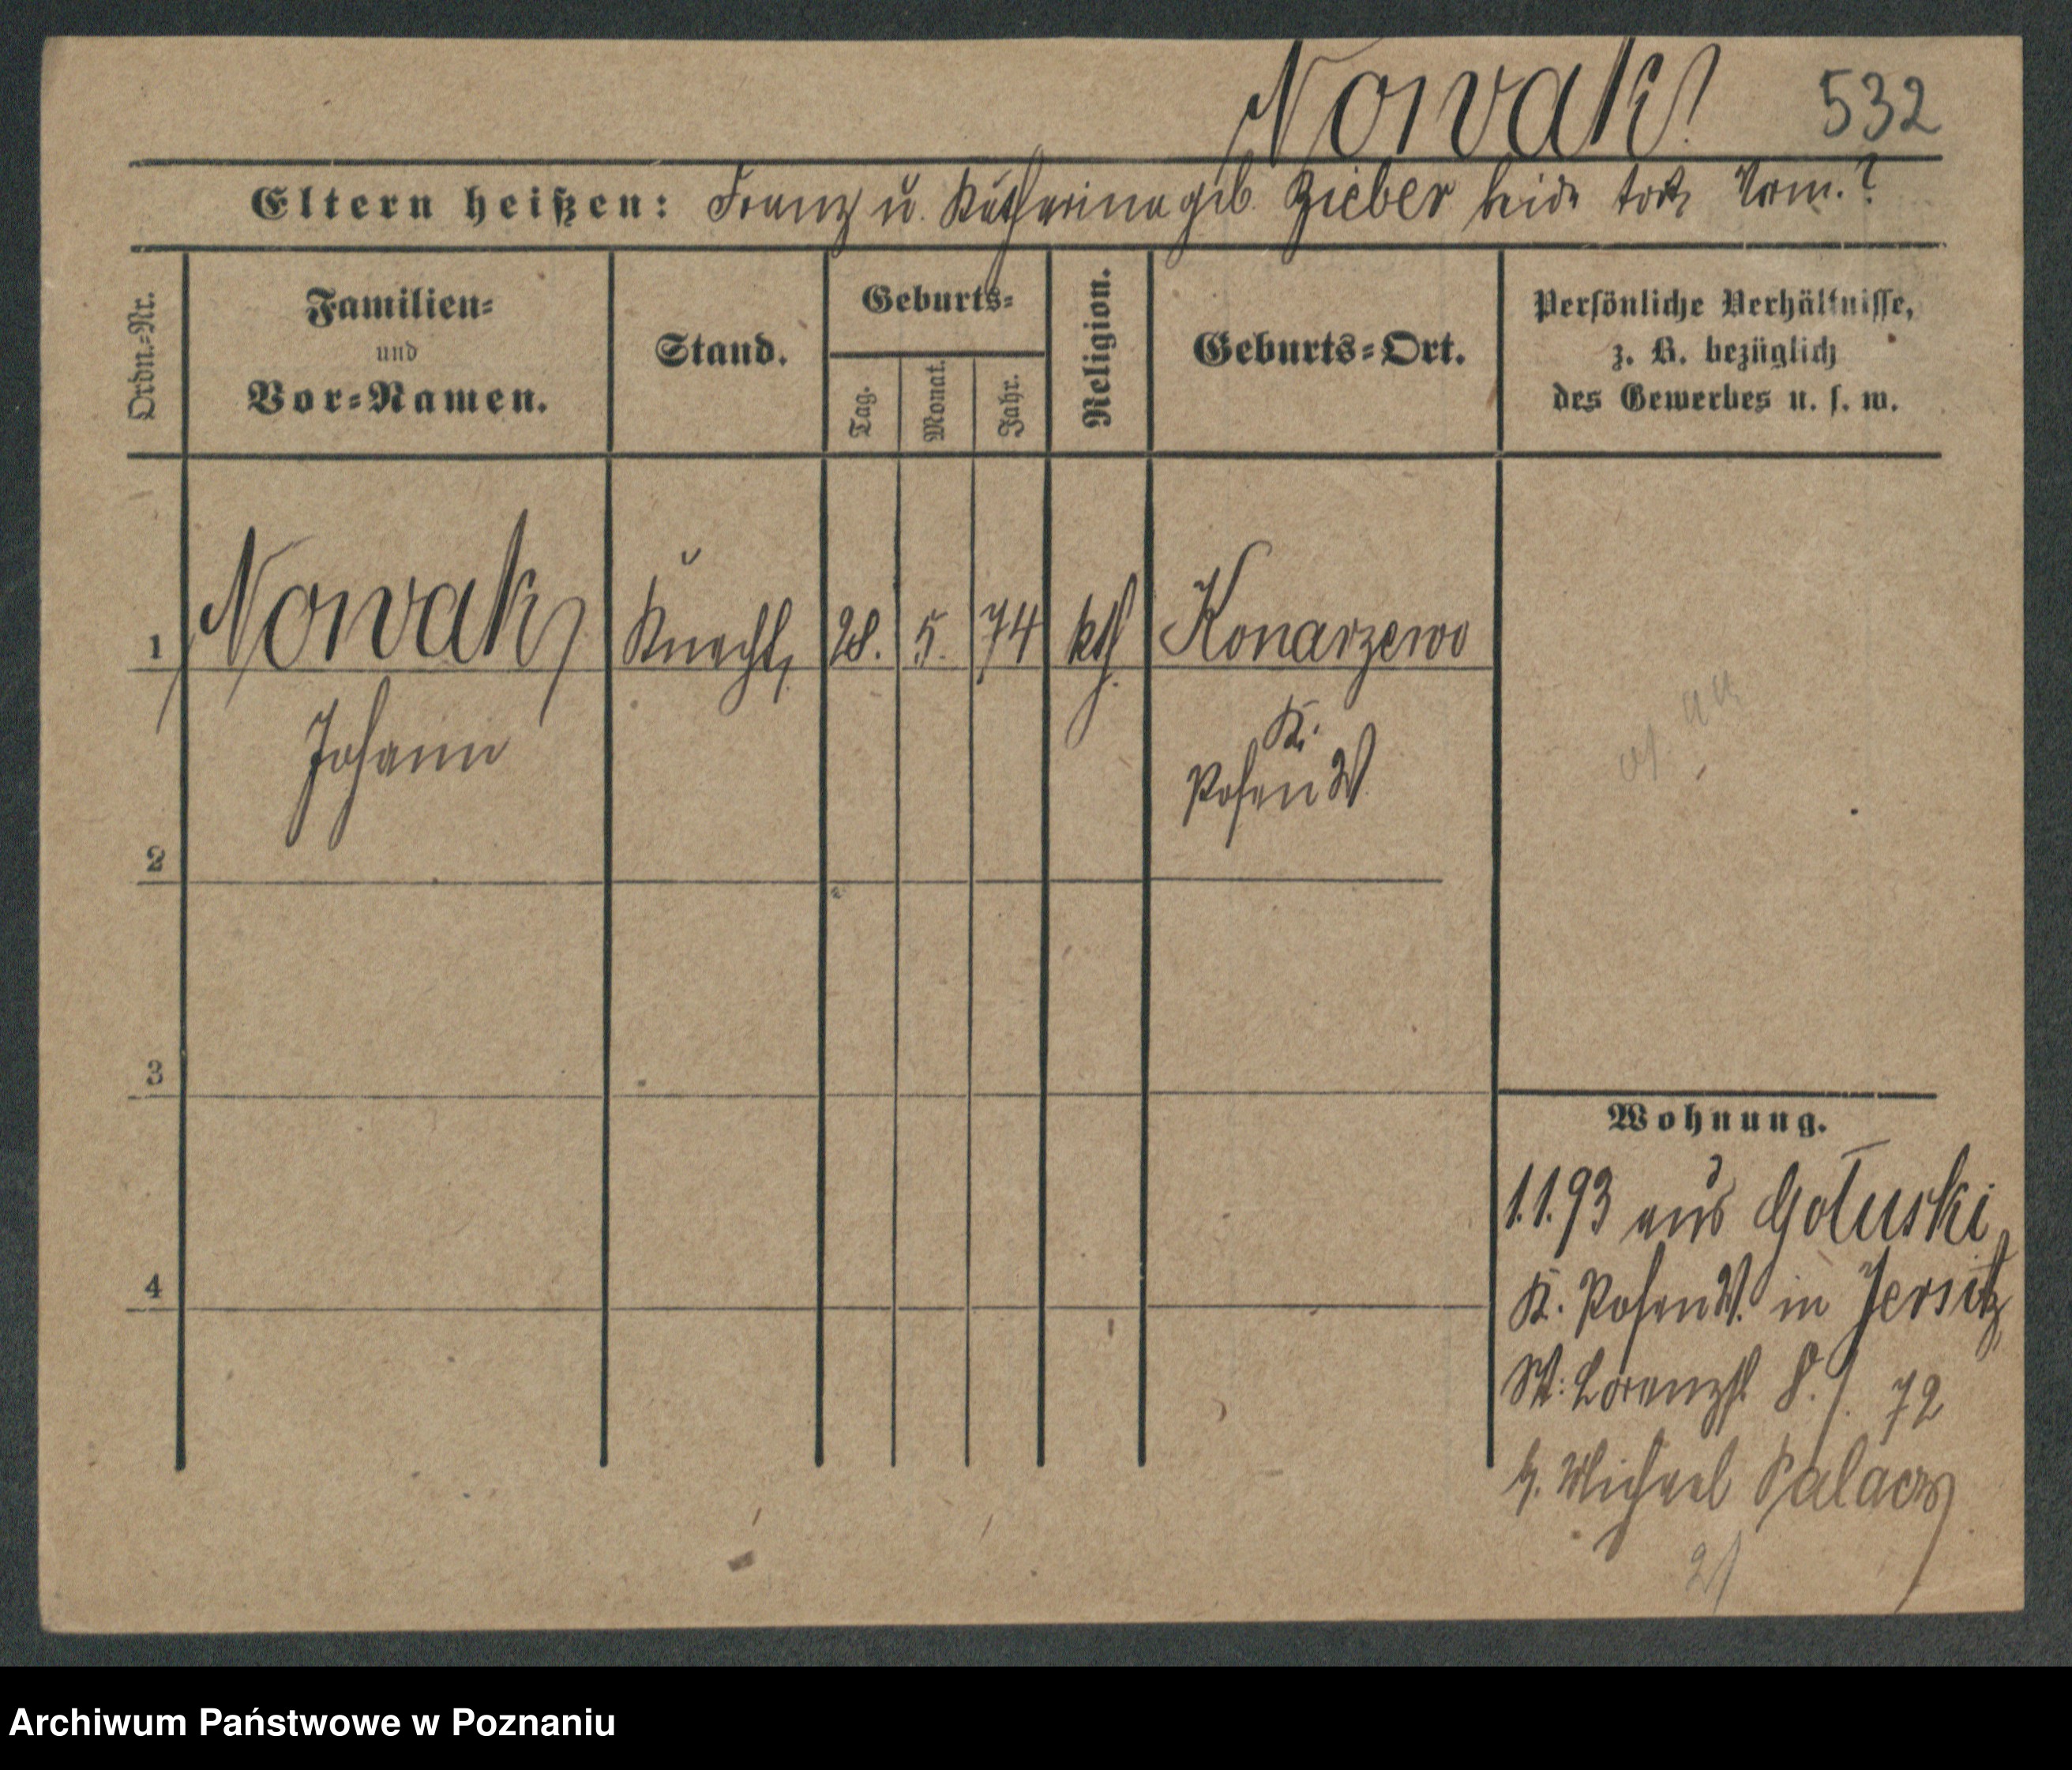 Nowak 532
Eltern heißen: Franz u. Katharina geb. Zieber beide tot,
Ordn.-Nr.
Familien-
und
Vor-Namen.
Stand.
Geburts-
Tag.
Monat.
Jahr.
Religion.
Geburts-Ort.
Persönliche Verhältnisse,
z. B. bezüglich
des Gewerbes u. s. w.
1 Nowak, Knecht, 28. 5. 74 kth. Konarzewo
Johann
K.
Posen W.
2
3
4
Wohnung.
1.1.93 aus Gołuski
K. Posen W. in Jersitz,
St: Lorenzst. 8./. 72
b. Michael Palacz
21
Archiwum Państwowe w Poznaniu